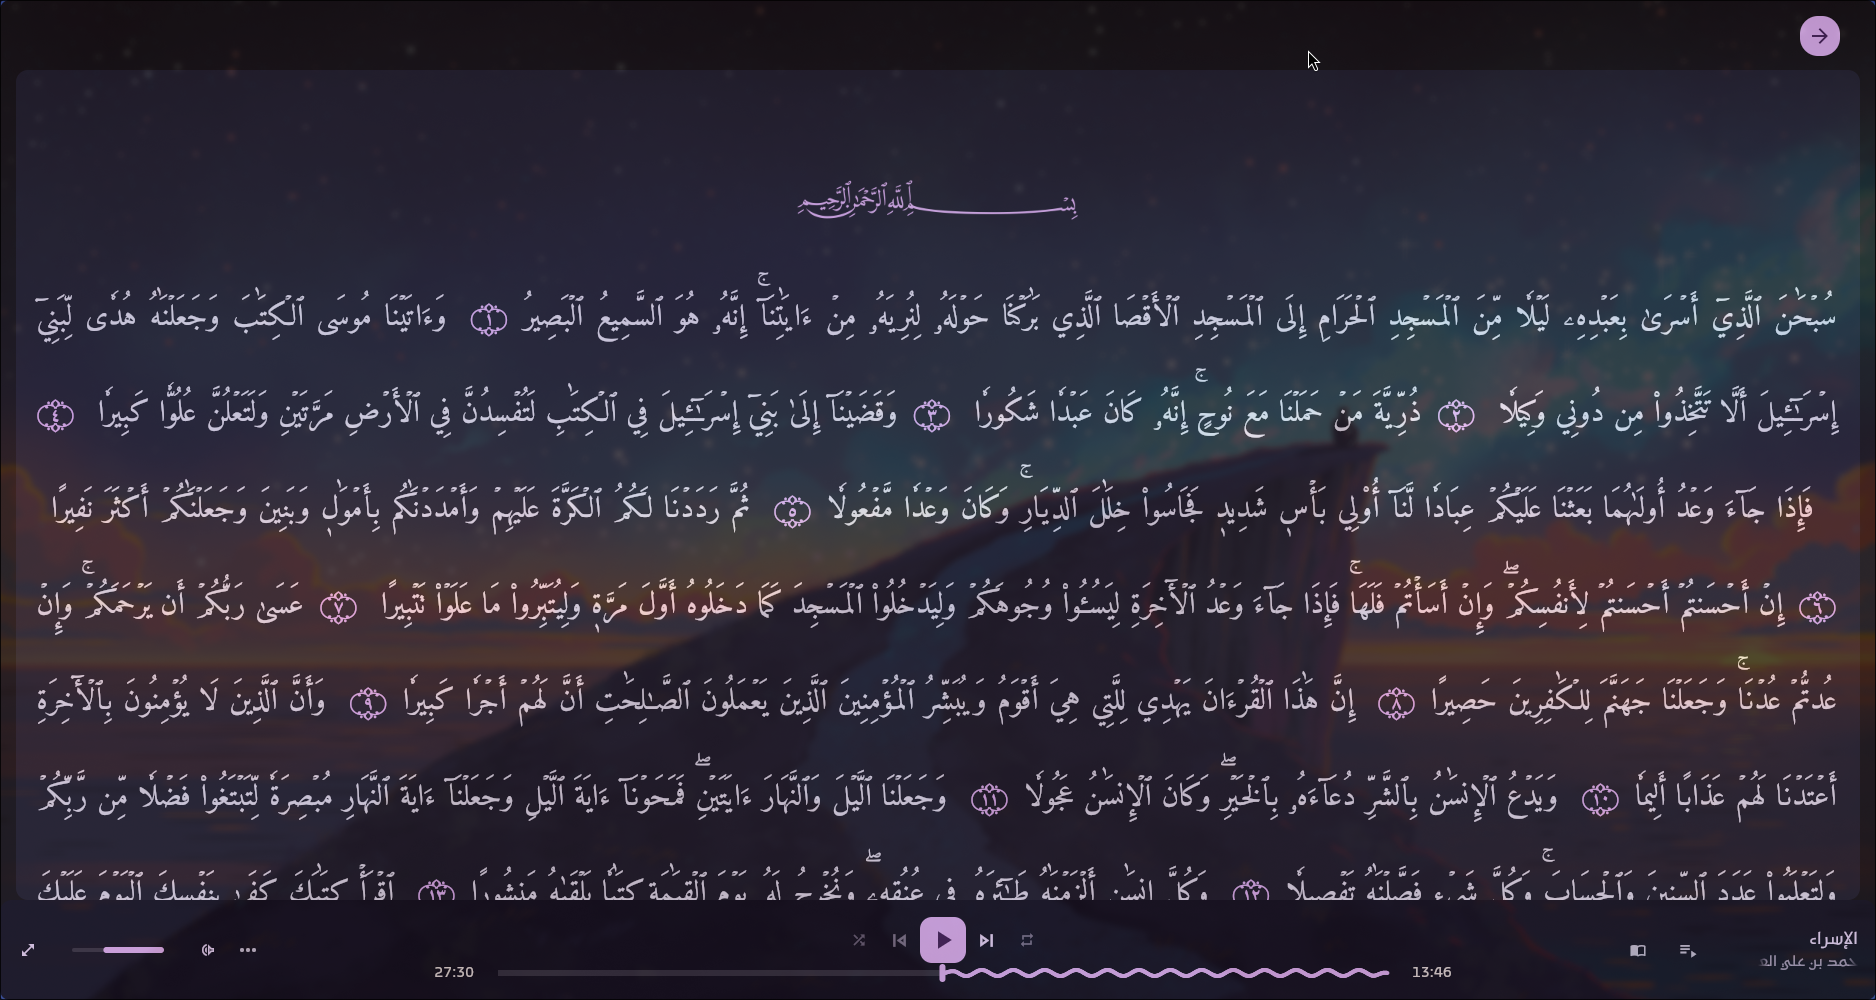 بِسْمِ ٱللَّهِ ٱلرَّحْمَٰنِ ٱلرَّحِيمِ
سُبْحَٰنَ ٱلَّذِيٓ أَسْرَىٰ بِعَبْدِهِۦ لَيْلًا مِّنَ ٱلْمَسْجِدِ ٱلْحَرَامِ إِلَى ٱلْمَسْجِدِ ٱلْأَقْصَا ٱلَّذِي بَٰرَكْنَا حَوْلَهُۥ لِنُرِيَهُۥ مِنْ ءَايَٰتِنَآۚ إِنَّهُۥ هُوَ ٱلسَّمِيعُ ٱلْبَصِيرُ ١ وَءَاتَيْنَا مُوسَى ٱلْكِتَٰبَ وَجَعَلْنَٰهُ هُدًى لِّبَنِيٓ
إِسْرَٰٓءِيلَ أَلَّا تَتَّخِذُوا۟ مِن دُونِي وَكِيلًا ٢ ذُرِّيَّةَ مَنْ حَمَلْنَا مَعَ نُوحٍۚ إِنَّهُۥ كَانَ عَبْدًا شَكُورًا ٣ وَقَضَيْنَآ إِلَىٰ بَنِيٓ إِسْرَٰٓءِيلَ فِي ٱلْكِتَٰبِ لَتُفْسِدُنَّ فِي ٱلْأَرْضِ مَرَّتَيْنِ وَلَتَعْلُنَّ عُلُوًّا كَبِيرًا ٤
فَإِذَا جَآءَ وَعْدُ أُولَىٰهُمَا بَعَثْنَا عَلَيْكُمْ عِبَادًا لَّنَآ أُو۟لِي بَأْسٍ شَدِيدٍ فَجَاسُوا۟ خِلَٰلَ ٱلدِّيَارِۚ وَكَانَ وَعْدًا مَّفْعُولًا ٥ ثُمَّ رَدَدْنَا لَكُمُ ٱلْكَرَّةَ عَلَيْهِمْ وَأَمْدَدْنَٰكُم بِأَمْوَٰلٍ وَبَنِينَ وَجَعَلْنَٰكُمْ أَكْثَرَ نَفِيرًا
٦ إِنْ أَحْسَنتُمْ أَحْسَنتُمْ لِأَنفُسِكُمْۖ وَإِنْ أَسَأْتُمْ فَلَهَاۚ فَإِذَا جَآءَ وَعْدُ ٱلْءَاخِرَةِ لِيَسُـُٔوا۟ وُجُوهَكُمْ وَلِيَدْخُلُوا۟ ٱلْمَسْجِدَ كَمَا دَخَلُوهُ أَوَّلَ مَرَّةٍ وَلِيُتَبِّرُوا۟ مَا عَلَوْا۟ تَتْبِيرًا ٧ عَسَىٰ رَبُّكُمْ أَن يَرْحَمَكُمْۚ وَإِنْ
عُدتُّمْ عُدْنَاۚ وَجَعَلْنَا جَهَنَّمَ لِلْكَٰفِرِينَ حَصِيرًا ٨ إِنَّ هَٰذَا ٱلْقُرْءَانَ يَهْدِي لِلَّتِي هِيَ أَقْوَمُ وَيُبَشِّرُ ٱلْمُؤْمِنِينَ ٱلَّذِينَ يَعْمَلُونَ ٱلصَّٰلِحَٰتِ أَنَّ لَهُمْ أَجْرًا كَبِيرًا ٩ وَأَنَّ ٱلَّذِينَ لَا يُؤْمِنُونَ بِٱلْءَاخِرَةِ
أَعْتَدْنَا لَهُمْ عَذَابًا أَلِيمًا ١٠ وَيَدْعُ ٱلْإِنسَٰنُ بِٱلشَّرِّ دُعَآءَهُۥ بِٱلْخَيْرِۖ وَكَانَ ٱلْإِنسَٰنُ عَجُولًا ١١ وَجَعَلْنَا ٱلَّيْلَ وَٱلنَّهَارَ ءَايَتَيْنِۖ فَمَحَوْنَآ ءَايَةَ ٱلَّيْلِ وَجَعَلْنَآ ءَايَةَ ٱلنَّهَارِ مُبْصِرَةً لِّتَبْتَغُوا۟ فَضْلًا مِّن رَّبِّكُمْ
وَلِتَعْلَمُوا۟ عَدَدَ ٱلسِّنِينَ وَٱلْحِسَابَۚ وَكُلَّ شَيْءٍ فَصَّلْنَٰهُ تَفْصِيلًا ١٢ وَكُلَّ إِنسَٰنٍ أَلْزَمْنَٰهُ طَٰٓئِرَهُۥ فِي عُنُقِهِۦۖ وَنُخْرِجُ لَهُۥ يَوْمَ ٱلْقِيَٰمَةِ كِتَٰبًا يَلْقَىٰهُ مَنشُورًا ١٣ ٱقْرَأْ كِتَٰبَكَ كَفَىٰ بِنَفْسِكَ ٱلْيَوْمَ عَلَيْكَ
الإسراء
بن علي
27:30
13:46